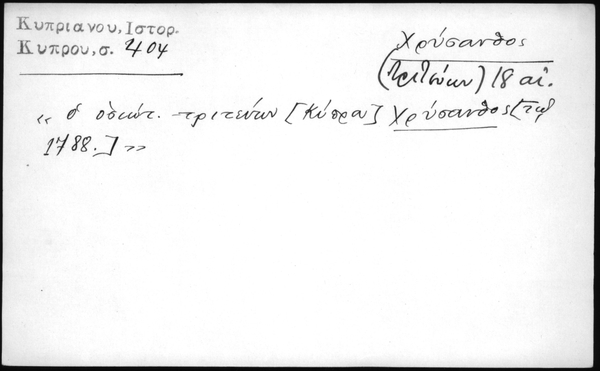 Κυπριανου, Ιστορ.
Κυπρου, σ. 404
Χρύσανθος
(Τριτεύων) 18 αἰ.
« ὁ ὁσιώτ. τριτεύων [Κύπρου] Χρύσανθος [τῷ
1788.] »